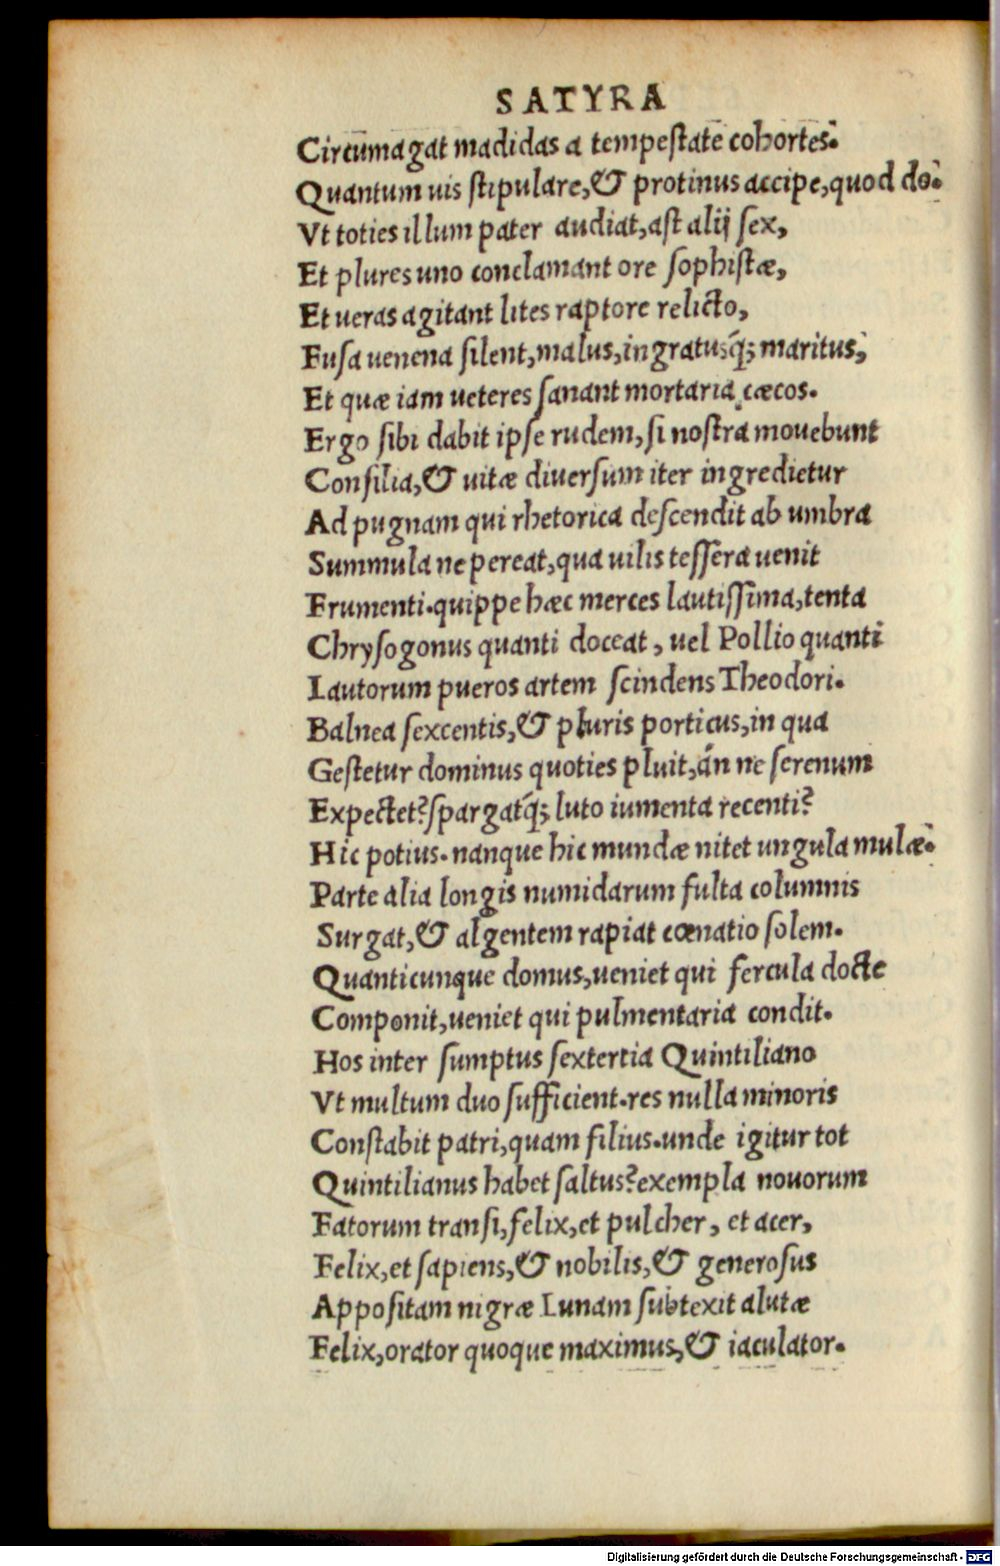 SATYRA
Circumagat madidas a tempestate cohortes.
Quantum uis stipulare,& protinus accipe,quod do.
Vt toties illum pater audiat,ast alij sex,
Et plures uno conclamant ore sophistæ,
Et ueras agitant lites raptore relicto,
Fusa uenena silent,malus,ingratusq́; maritus,
Et quæ iam ueteres sanant mortaria cæcos.
Ergo sibi dabit ipse rudem,si nostra mouebunt
Consilia,& uitæ diuersum iter ingredietur
Ad pugnam qui rhetorica descendit ab umbra
Summula ne pereat,qua uilis tessera uenit
Frumenti.quippe hæc merces lautissima,tenta
Chrysogonus quanti doceat, uel Pollio quanti
Lautorum pueros artem scindens Theodori.
Balnea sexcentis,& pluris porticus,in qua
Gestetur dominus quoties pluit,án ne serenum
Expectet?spargatq́; luto iumenta recenti?
Hic potius.nanque hic mundæ nitet ungula mulæ.
Parte alia longis numidarum fulta columnis
Surgat,& algentem rapiat cœnatio solem.
Quanticunque domus,ueniet qui fercula docte
Componit,ueniet qui pulmentaria condit.
Hos inter sumptus sextertia Quintiliano
Vt multum duo sufficient.res nulla minoris
Constabit patri,quam filius.unde igitur tot
Quintilianus habet saltus?exempla nouorum
Fatorum transi,felix,et pulcher, et acer,
Felix,et sapiens,& nobilis,& generosus
Appositam nigræ Lunam subtexit alutæ
Felix,orator quoque maximus,& iaculator.
Digitalisierung gefördert durch die Deutsche Forschungsgemeinschaft - DFG